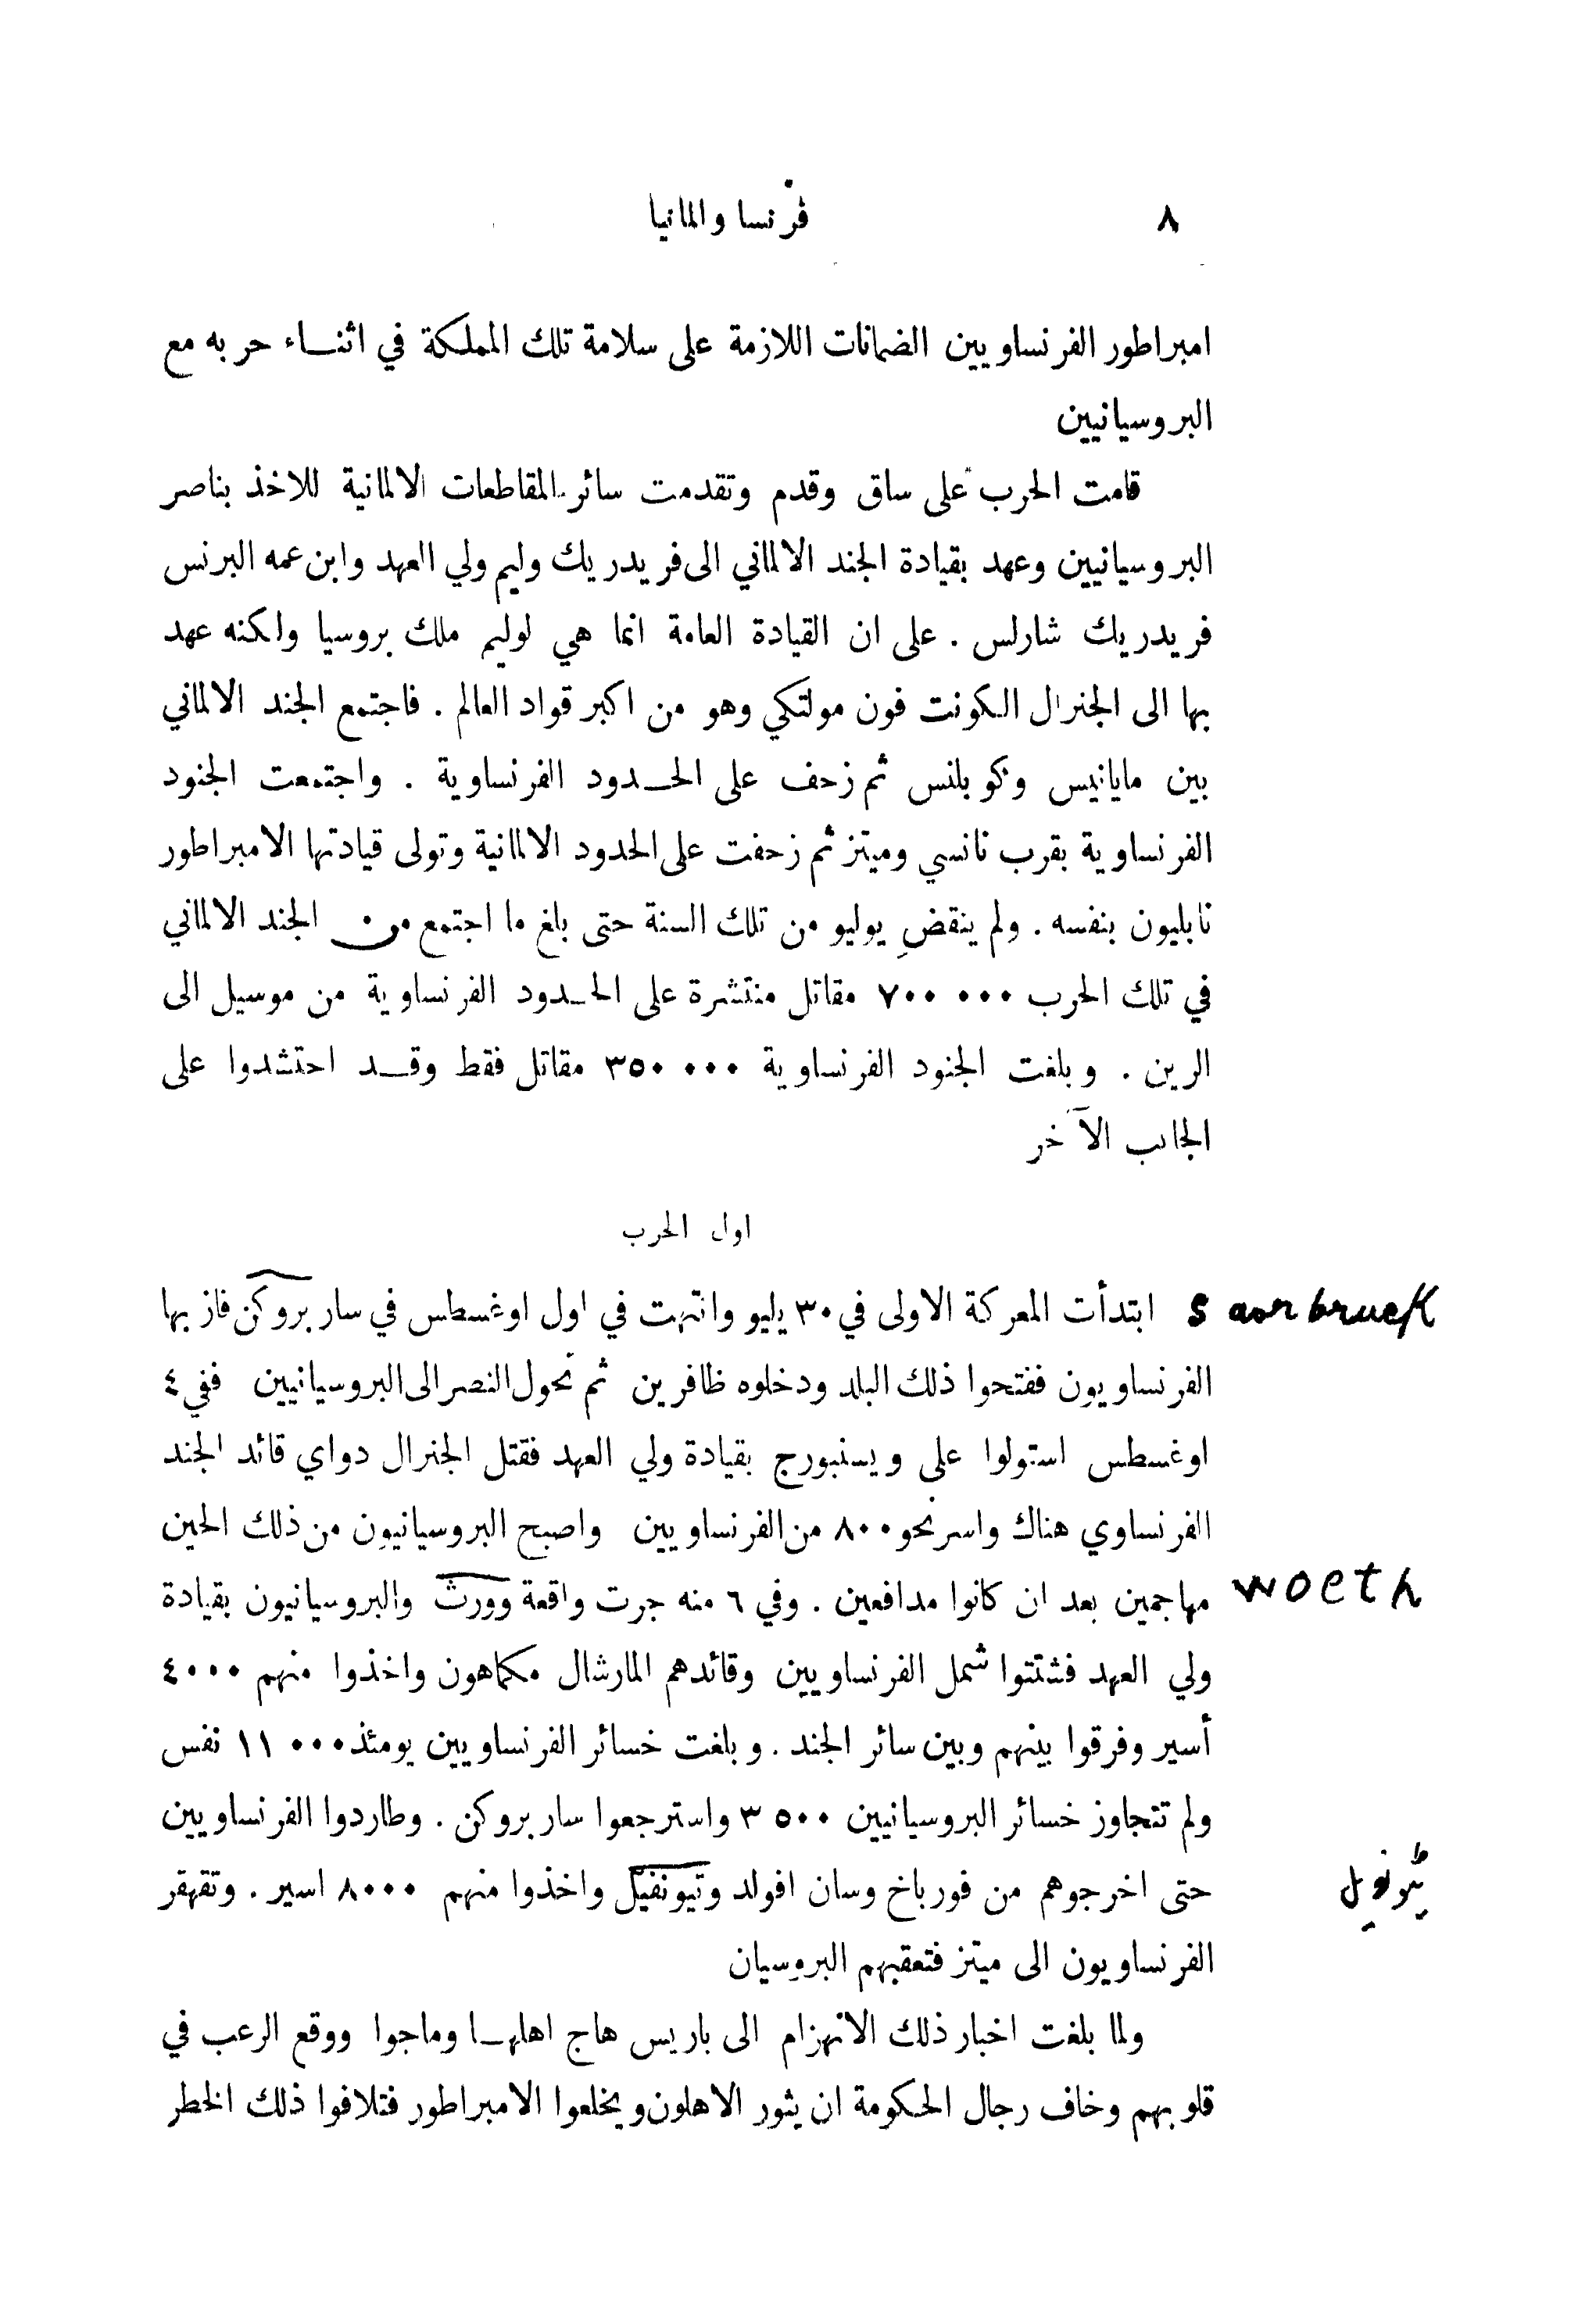 ٨ فرنسا والمانيا
امبراطور الفرنساويين الضمانات اللازمة على سلامة تلك المملكة في اثنـاء حربه مع
البروسيانيين
قامت الحرب على ساق وقدم وتقدمت سائر المقاطعات الالمانية للاخذ بناصر
البروسيانيين وعهد بقيادة الجند الالماني الى فريدريك وليم ولي العهد وابن عمه البرنس
فريدريك شارلس . على ان القيادة العامة انما هي لوليم ملك بروسيا ولكنه عهد
بها الى الجنرال الكونت فون مولتكي وهو من اكبر قواد العالم . فاجتمع الجند الالماني
بين مايانيس وكوبلنس ثم زحف على الحـدود الفرنساوية . واجتمعت الجنود
الفرنساوية بقرب نانسي وميتز ثم زحفت على الحدود الالمانية وتولى قيادتها الامبراطور
نابليون بنفسه . ولم ينقضِ يوليو من تلك السنة حتى بلغ ما اجتمع من الجند الالماني
في تلك الحرب ٧٠٠ ٠٠٠ مقاتل منتشرة على الحـدود الفرنساوية من موسيل الى
الرين . وبلغت الجنود الفرنساوية ٣٥٠ ٠٠٠ مقاتل فقط وقـد احتشدوا على
الجانب الآخر
اول الحرب
Saarbrueck ابتدأت المعركة الاولى في ٣٠ يليو وانتهت في اول اوغسطس في سار بروكن فاز بها
الفرنساويون ففتحوا ذلك البلد ودخلوه ظافرين ثم تحول النصر الى البروسيانيين ففي ٤
اوغسطس استولوا على ويسنبورج بقيادة ولي العهد فقتل الجنرال دواي قائد الجند
الفرنساوي هناك واسر نحو ٨٠٠ من الفرنساويين واصبح البروسيانيون من ذلك الحين
woeth مهاجمين بعد ان كانوا مدافعين . وفي ٦ منه جرت واقعة وورث والبروسيانيون بقيادة
ولي العهد فشتتوا شمل الفرنساويين وقائدهم المارشال مكماهون واخذوا منهم ٤٠٠٠
أسير وفرقوا بينهم وبين سائر الجند . وبلغت خسائر الفرنساويين يومئذ ١١ ٠٠٠ نفس
ولم تتجاوز خسائر البروسيانيين ٣ ٥٠٠ واسترجعوا سار بروكن . وطاردوا الفرنساويين
حتى اخرجوهم من فورباخ وسان افولد وتيونفيل واخذوا منهم ٨٠٠٠ اسير . وتقهقر
الفرنساويون الى ميتز فتعقبهم البروسيان
ولما بلغت اخبار ذلك الانهزام الى باريس هاج اهلهـا وماجوا ووقع الرعب في
قلوبهم وخاف رجال الحكومة ان يثور الاهلون ويخلعوا الامبراطور فتلافوا ذلك الخطر